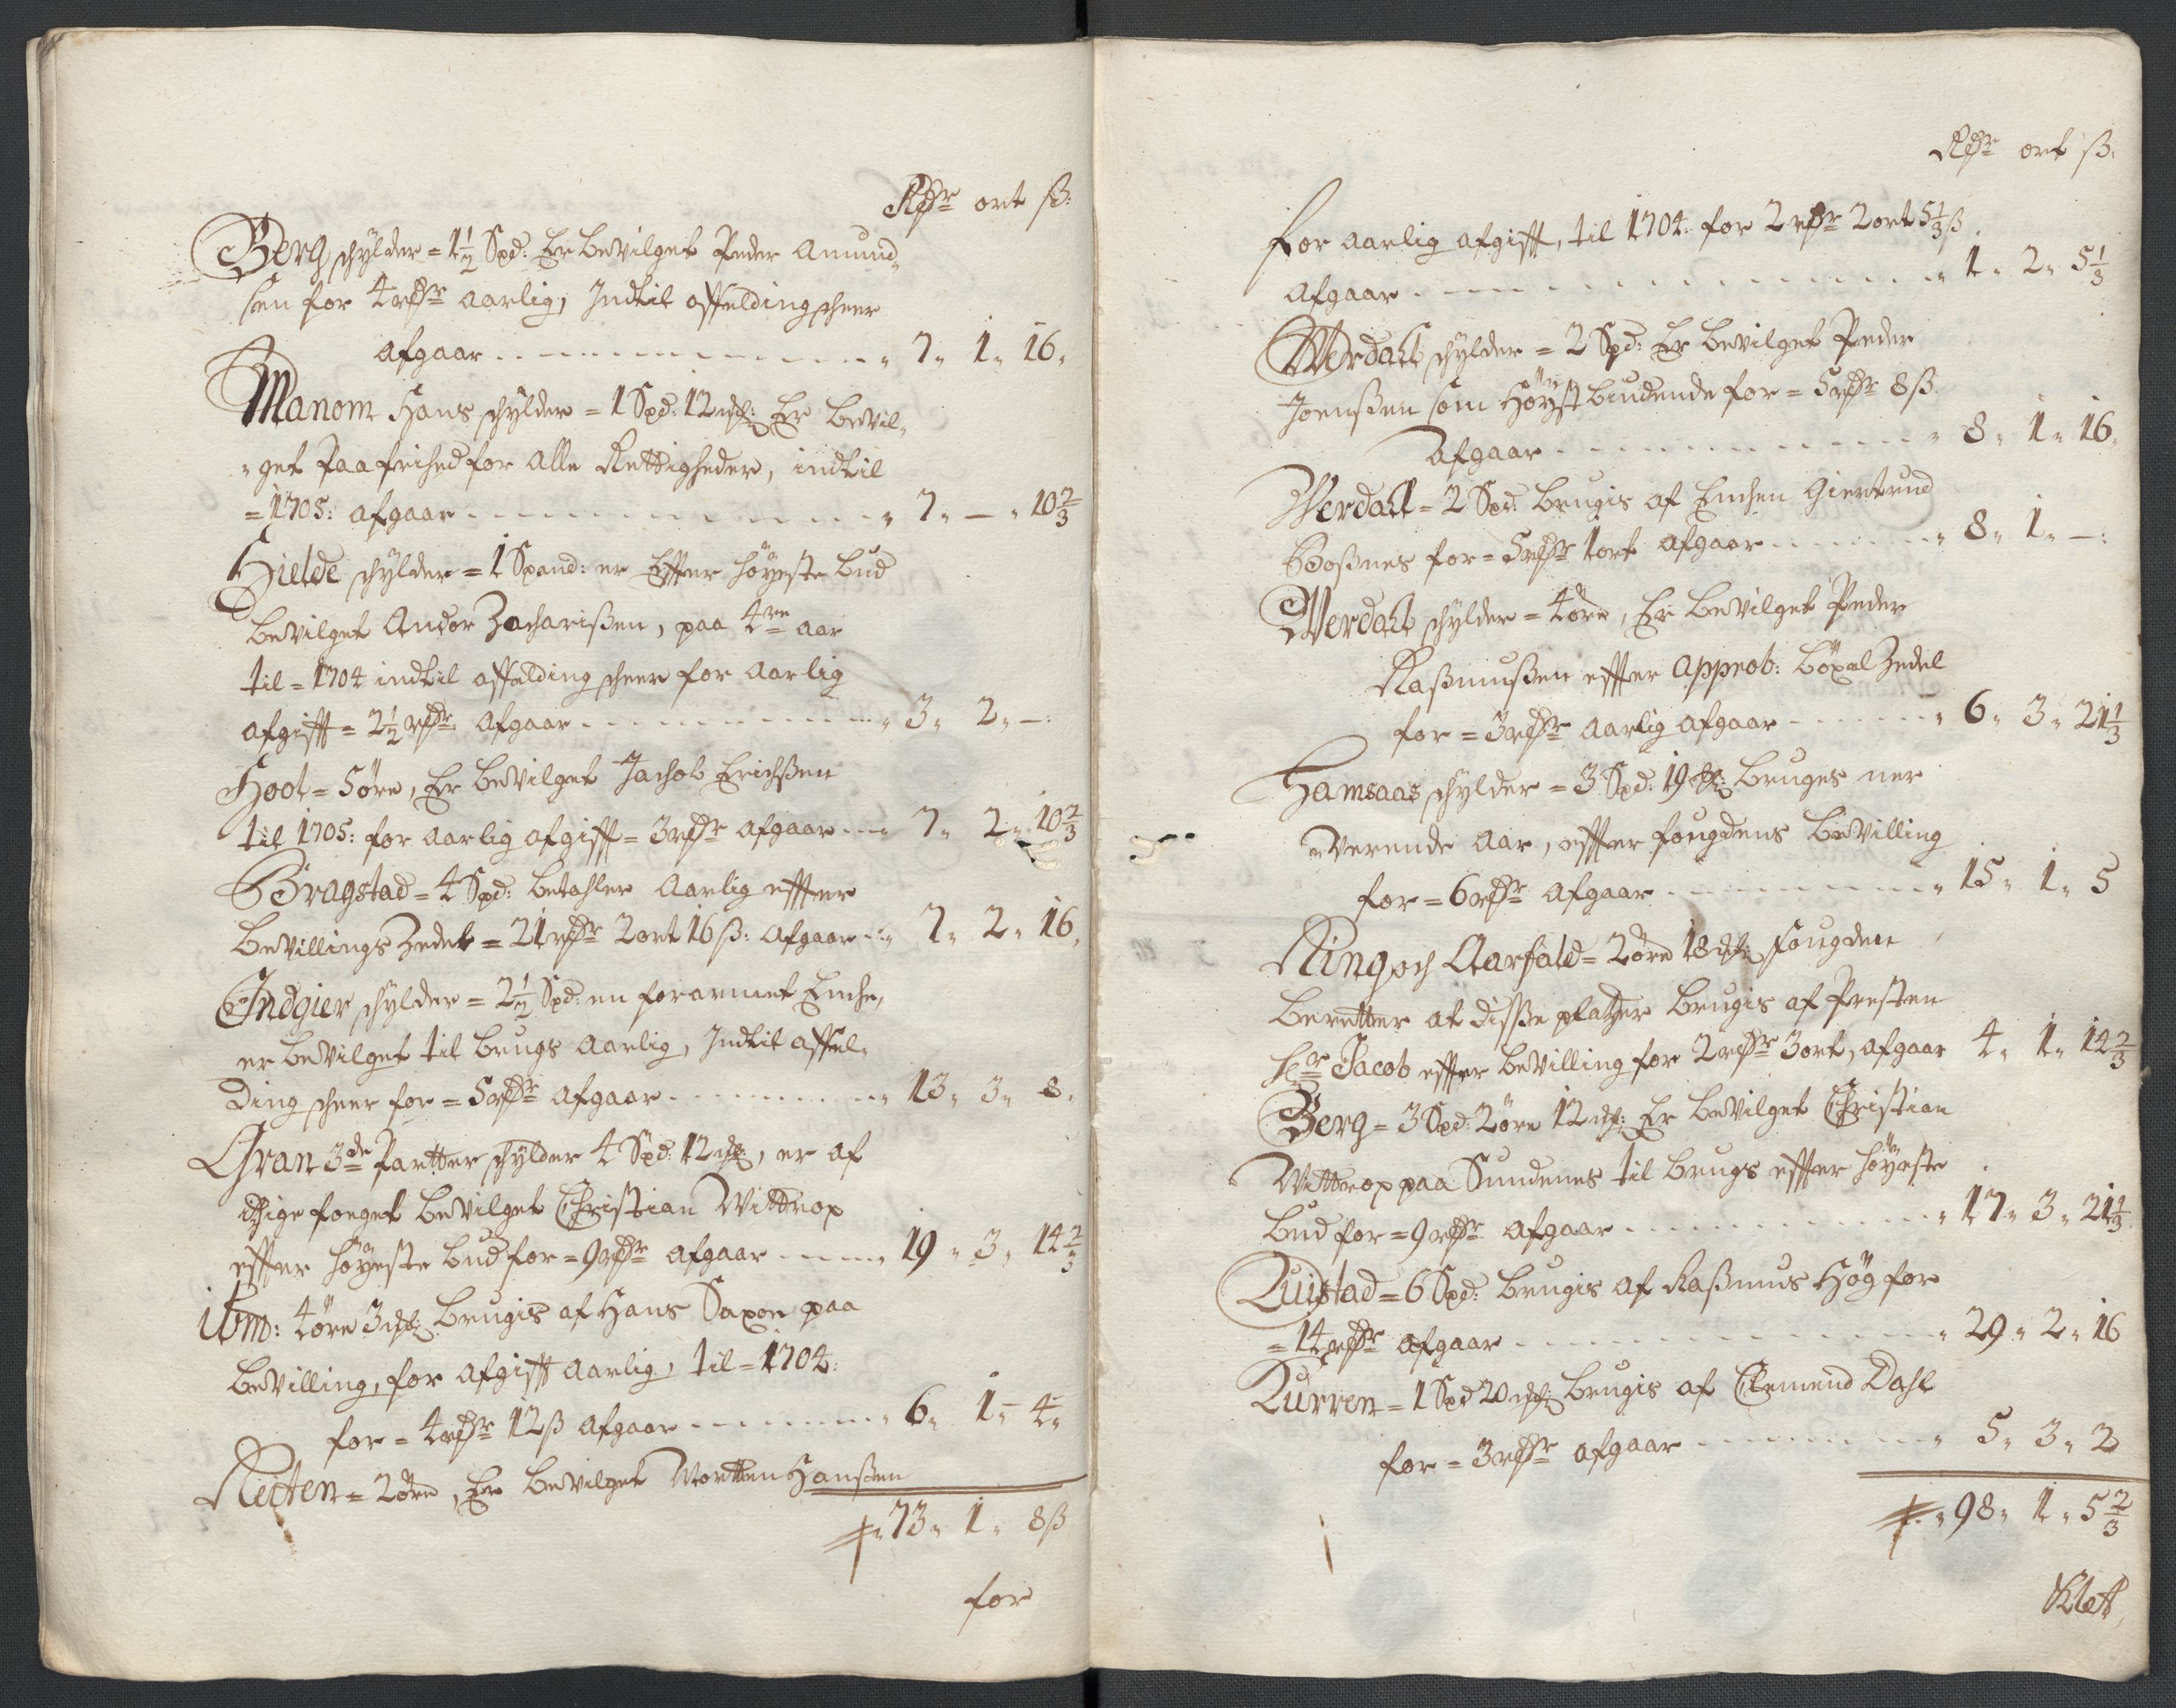 Rdr ort ß:
Berg schylder = 1½ Spd: Er bevilget Peder Amund-
sen for 4 rdr aarlig, Indtil affelding scheer
afgaar - - - 7. 1. 16.
Manom Hans schylder = 1 Spd: 12 mk: Er bevil-
get paa frihed for alle Rettigheder, indtil
= 1705: afgaar - - - 7. — . 10⅔
Hielde schylder = 1 Spand: er Effter høyeste bud
bevilget Andor Zacharißen, paa 4re aar
til = 1704 indtil affelding scheer for aarlig
afgifft = 2½ rdr. afgaar - - - 3. 2. —:
Hoot = 5 øre, Er bevilget Jachob Erichßen
til 1705: for aarlig afgifft = 3 rdr afgaar - - - 7. 2. 10⅔
Bragstad = 4 Spd: betahler aarlig effter
bevillings Zedel = 21 rdr 2 ort 16 ß: afgaar - - 7. 2. 16.
Indgier schylder = 2½ Spd: en forarmet Enche,
er bevilget til brugs aarlig, Indtil affel-
ding scheer for = 5 rdr afgaar - - - 13. 3. 8.
Gran 3de Partter schylder 4 Spd: 12 mk:, er af
foeget bevilget Christian Wittrop
effter høyeste bud for = 9 rdr afgaar - - - 19. 3. 14⅔
ibm: 4 øre 3 mk: brugis af Hans Saxon paa
bevilling, for afgifft aarlig, til = 1704:
for = 4 rdr 12 ß afgaar - - - 6. 1. 4.
Reitten = 2 øre, Er bevilget Mortten Hanßen
73. 1. 8 ß
for
Rdr ort ß:
for aarlig afgifft, til 1704: for 2 rdr 2 ort 5⅓ ß
afgaar - - - 1. 2. 5⅓
Werdahl schylder = 2 Spd: Er bevilget Peder
Joenßen som Høyst biudende for = 5 rdr 8 ß
afgaar - - - 8. 1. 16.
Werdall = 2 Spd: brugis af Enchen Giertrud
Boßnes for = 5 rdr 1 ort afgaar - - - 8. 1. —:
Werdahl schylder = 4 øre, Er bevilget Peder
Raßmußen effter approb: böxel Zedel
for = 3 rdr aarlig afgaar - - - 6. 3. 21⅓
Hamsaas schylder = 3 Spd: 19 mk: bruges ner
werende aar, effter fougdens bevilling
for = 6 rdr afgaar - - - 15. 1. 5
Ring och Aarfald = 2 øre 18 mk: Fougden
beretter at disse platzer brugis af Presten
Hr Jacob effter bevilling for 2 rdr 3 ort, afgaar 4. 1. 14⅔
Berg = 3 Spd: 2 øre 12 mk: Er bevilget Christian
Wittrop paa Sundenes til brugs effter høyeste
bud for = 9 rdr afgaar - - - 17. 3. 21⅓
Quistad = 6 Spd: brugis af Raßmus Høg for
= 14 rdr afgaar - - - 29. 2. 16
Qurren = 1 Spd 20 mk: brugis af Clemend Dahl
for = 3 rdr afgaar - - - 5. 3. 2
98. 1. 5⅔
Klet